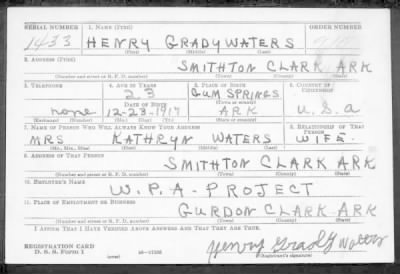 SERIAL NUMBER 1. NAME (Print) ORDER NUMBER
1433 HENRY GRADY WATERS
(First) (Middle) (Last)
2. ADDRESS (Print)
SMITHTON CLARK ARK
(Number and street or R. F. D. number) (Town) (County) (State)
3. TELEPHONE 4. AGE IN YEARS 5. PLACE OF BIRTH 6. COUNTRY OF CITIZENSHIP
23 GUM SPRINGS
DATE OF BIRTH (Town or county)
none 12-23-1917 ARK U.S.a
(Exchange) (Number) (Mo.) (Day) (Yr.) (State or country)
7. NAME OF PERSON WHO WILL ALWAYS KNOW YOUR ADDRESS 8. RELATIONSHIP OF THAT PERSON
MRS KATHRYN WATERS WIFE
(Mr., Mrs., Miss) (First) (Middle) (Last)
9. ADDRESS OF THAT PERSON
SMITHTON CLARK ARK
(Number and street or R. F. D. number) (Town) (County) (State)
10. EMPLOYER'S NAME
W.P.A-PROJECT
11. PLACE OF EMPLOYMENT OR BUSINESS
GURDON CLARK ARK
(Number and street or R. F. D. number) (Town) (County) (State)
I AFFIRM THAT I HAVE VERIFIED ABOVE ANSWERS AND THAT THEY ARE TRUE.
REGISTRATION CARD
D. S. S. FORM 1 (over) 16-17105 Henry Grady Waters
(Registrant's signature)